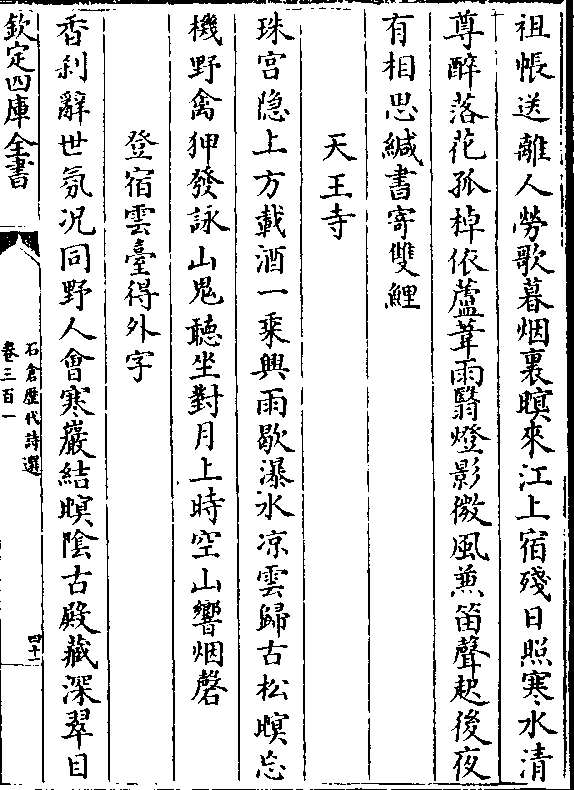 祖帳送離人勞歌暮烟裏暝來江上宿殘日照寒水清
尊醉落花孤棹依蘆葦雨翳燈影微風兼笛聲起後夜
有相思緘書寄雙鯉
天王寺
珠宮隐上方載酒一乘興雨歇瀑水凉雲歸古松暝忘
機野禽狎發詠山鬼聽坐對月上時空山響烟磬
登宿雲臺得外字
香刹辭世氛况同野人會寒巖結暝陰古殿藏深翠目
欽定四庫全書
石倉歷代詩選
卷三百一
四十一